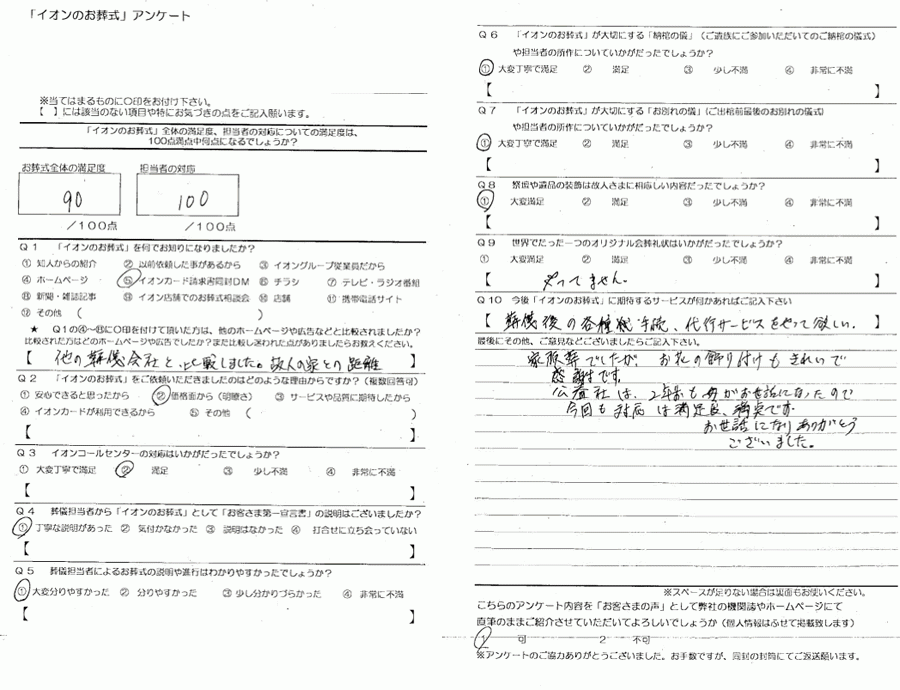 「イオンのお葬式」アンケート
※当てはまるものに〇印をお付け下さい。
【 】には該当のない項目や特にお気づきの点をご記入願います。
「イオンのお葬式」全体の満足度、担当者の対応についての満足度は、
100点満点中何点になるでしょうか？
お葬式全体の満足度 担当者の対応
90 100
／100点 ／100点
Q1 「イオンのお葬式」を何でお知りになりましたか？
① 知人からの紹介 ② 以前依頼した事があるから ③ イオングループ従業員だから
④ ホームページ ⑤ イオンカード請求書同封DM ⑥ チラシ ⑦ テレビ・ラジオ番組
⑧ 新聞・雑誌記事 イオン店舗でのお葬式相談会 ⑩ 店舗 ⑪ 携帯電話サイト
⑫ その他 （ ）
★ Q1の④～⑧に〇印を付けて頂いた方は、他のホームページや広告などと比較されましたか？
比較された方はどのホームページや広告でしたか？また比較し迷われた点がありましたらお教えください。
【 他の葬儀会社と、比較しました。故人の家との距離 】
Q2 「イオンのお葬式」をご依頼いただきましたのはどのような理由からですか？（複数回答可）
① 安心できると思ったから ② 価格面から（明瞭さ） ③ サービスや品質に期待したから
④ イオンカードが利用できるから ⑤ その他（ ）
【 】
Q3 イオンコールセンターの対応はいかがだったでしょうか？
① 大変丁寧で満足 ② 満足 ③ 少し不満 ④ 非常に不満
【 】
Q4 葬儀担当者から「イオンのお葬式」として「お客さま第一宣言書」の説明はございましたか？
① 丁寧な説明があった ② 気付かなかった ③ 説明はなかった ④ 打合せに立ち会っていない
【 】
Q5 葬儀担当者によるお葬式の説明や進行はわかりやすかったでしょうか？
① 大変分りやすかった ② 分りやすかった ③ 少し分かりづらかった ④ 非常に不満
【 】
Q6 「イオンのお葬式」が大切にする「納棺の儀」（ご遺族にご参加いただいてのご納棺の儀式）
や担当者の所作についていかがだったでしょうか？
① 大変丁寧で満足 ② 満足 ③ 少し不満 ④ 非常に不満
【 】
Q7 「イオンのお葬式」が大切にする「お別れの儀」（ご出棺前最後のお別れの儀式）
や担当者の所作についていかがだったでしょうか？
① 大変丁寧で満足 ② 満足 ③ 少し不満 ④ 非常に不満
【 】
Q8 祭壇や遺品の装飾は故人さまに相応しい内容だったでしょうか？
① 大変満足 ② 満足 ③ 少し不満 ④ 非常に不満
【 】
Q9 世界でたった一つのオリジナル会葬礼状はいかがだったでしょうか？
① 大変満足 ② 満足 ③ 少し不満 ④ 非常に不満
【 やってません。 】
Q10 今後「イオンのお葬式」に期待するサービスが何かあればご記入下さい
【 葬儀後の各種 手続、代行サービスをやって欲しい。 】
最後にその他、ご意見などございましたらご記入下さい。
家族葬でしたが、お花の飾り付けもきれいで
感謝です。
公益社は、2年前も 母がお世話になったので
今回も 対応は満足度、満点です。
お世話になりありがとう
ございました。
※スペースが足りない場合は裏面もお使いください。
こちらのアンケート内容を「お客さまの声」として弊社の機関誌やホームページにて
直筆のままご紹介させていただいてよろしいでしょうか（個人情報はふせて掲載致します）
1 可 2 不可
※アンケートのご協力ありがとうございました。お手数ですが、同封の封筒にてご返送願います。